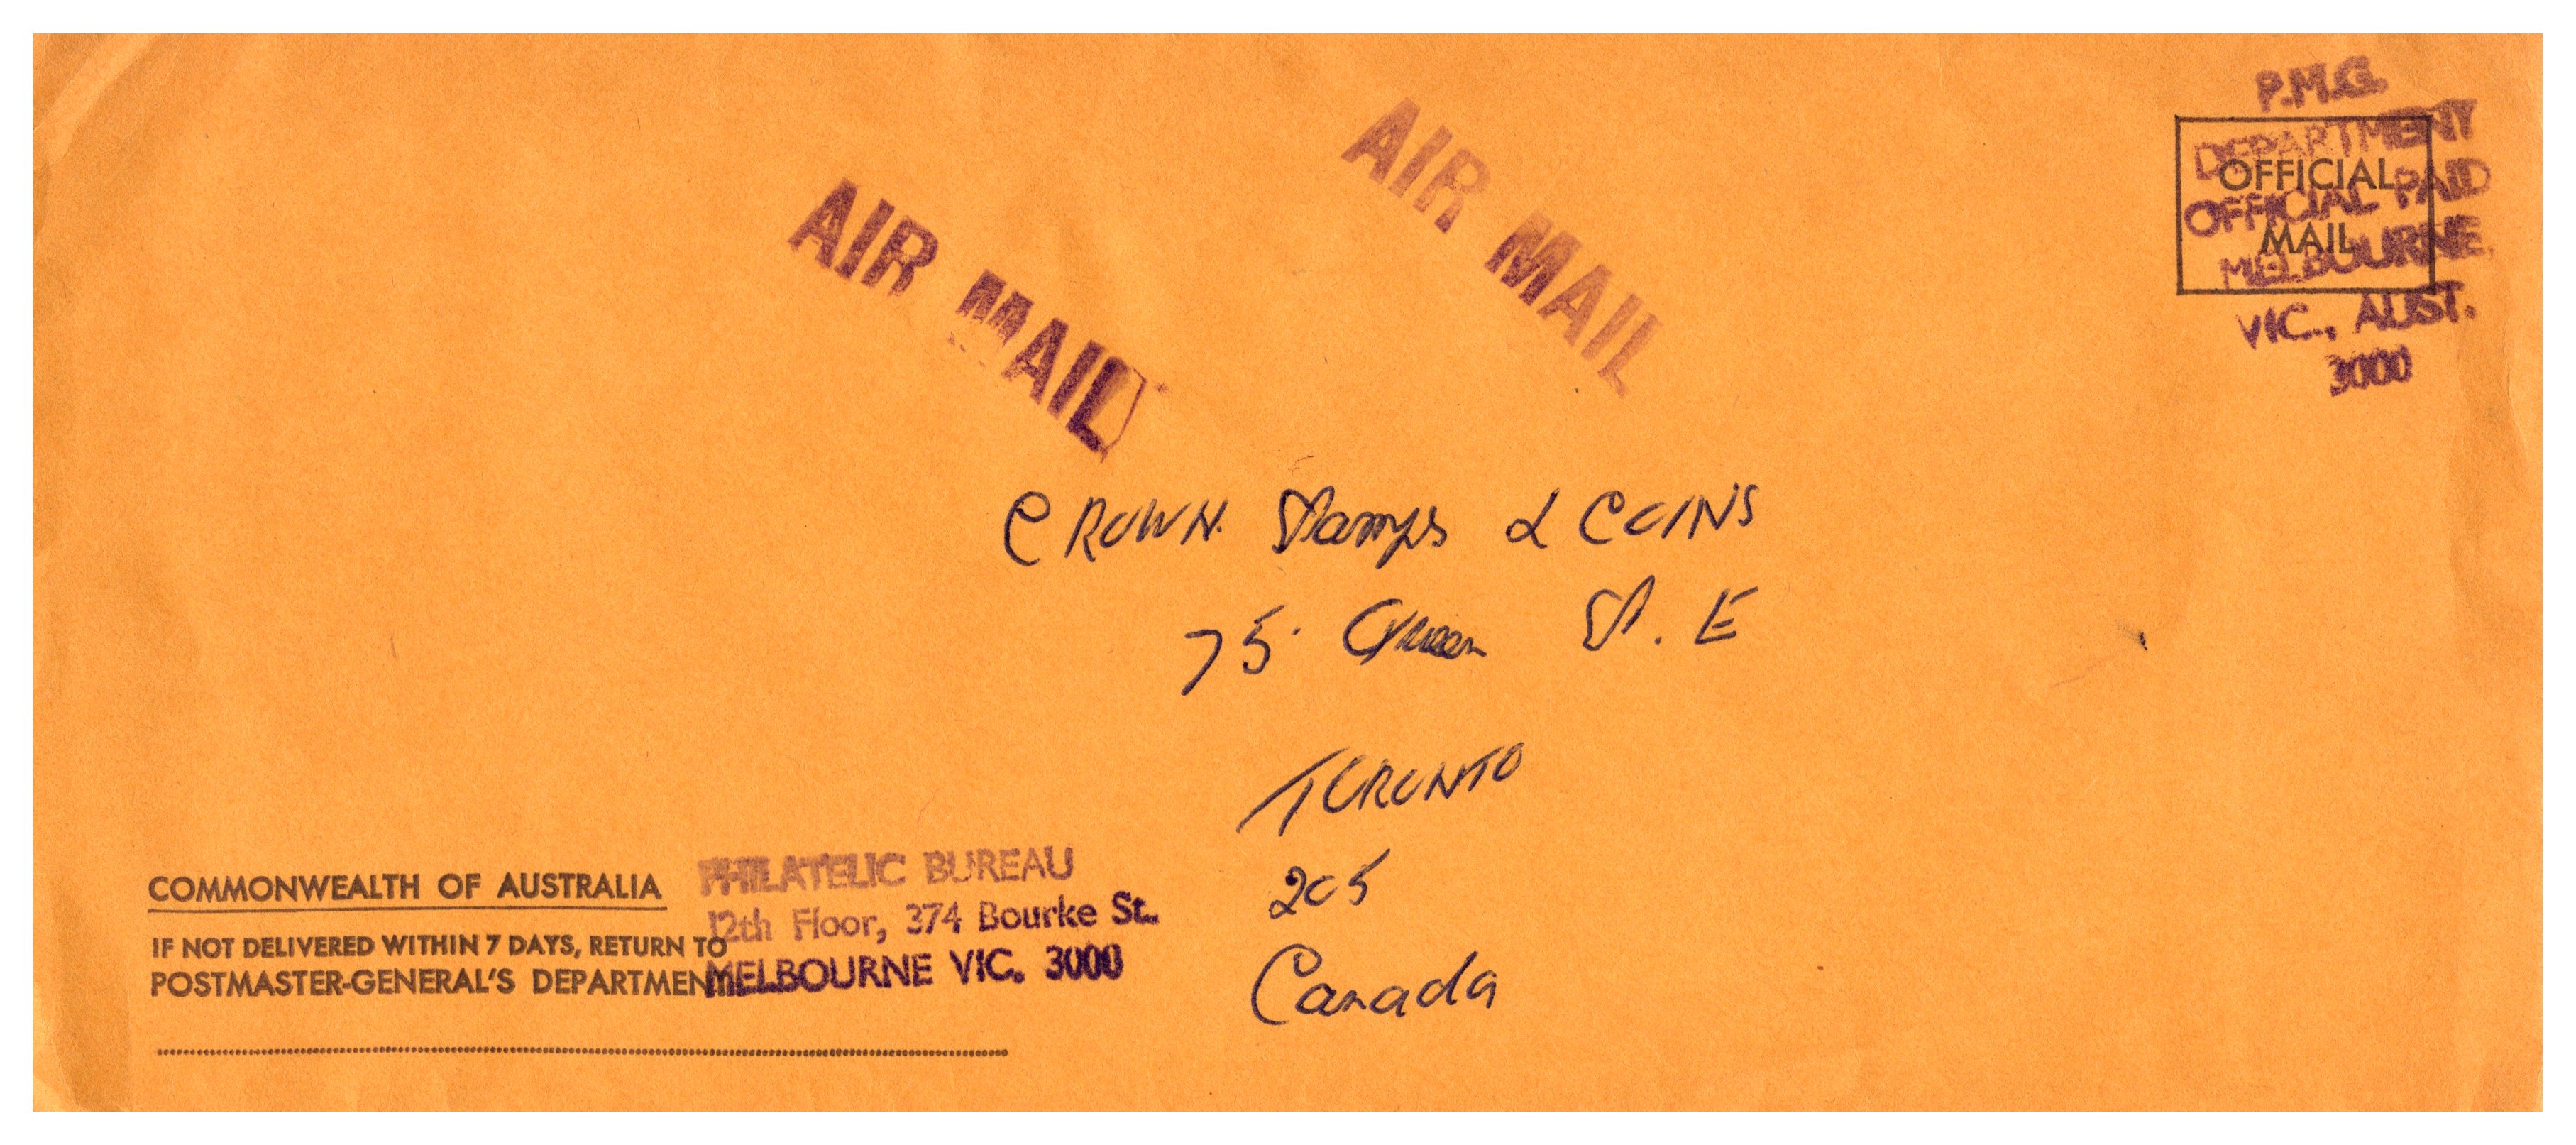 P.M.G.
DEPARTMENT
OFFICIAL PAID
MELBOURNE,
VIC., AUST.
3000
OFFICIAL
MAIL
AIR MAIL
AIR MAIL
CROWN. Stamps & COINS
75. Queen St. E
TORONTO
205
Canada
COMMONWEALTH OF AUSTRALIA
IF NOT DELIVERED WITHIN 7 DAYS, RETURN TO
POSTMASTER-GENERAL'S DEPARTMENT
PHILATELIC BUREAU
12th Floor, 374 Bourke St.
MELBOURNE VIC. 3000